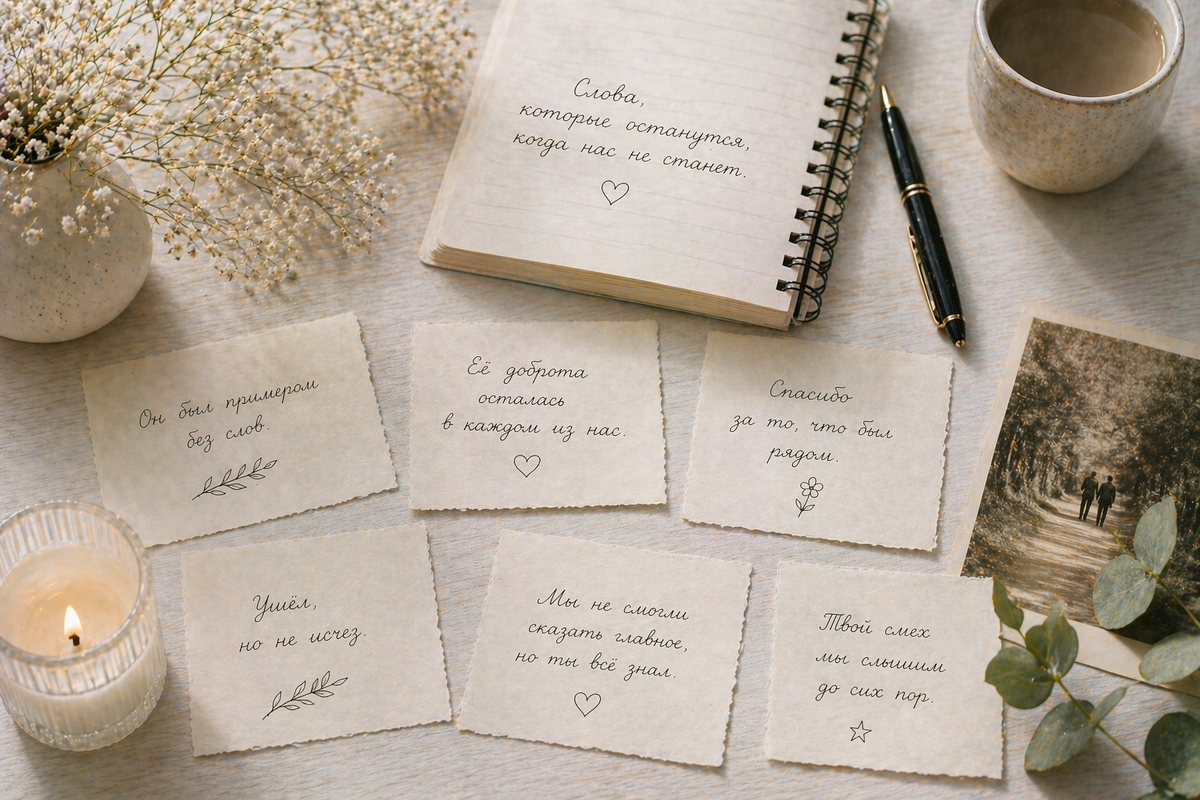 Слова,
которые останутся,
когда нас не станет.
Он был примером
без слов.
Её доброта
осталась
в каждом из нас.
Спасибо
за то, что был
рядом.
Ушёл,
но не исчез.
Мы не смогли
сказать главное,
но ты всё знал.
Твой смех
мы слышим
до сих пор.